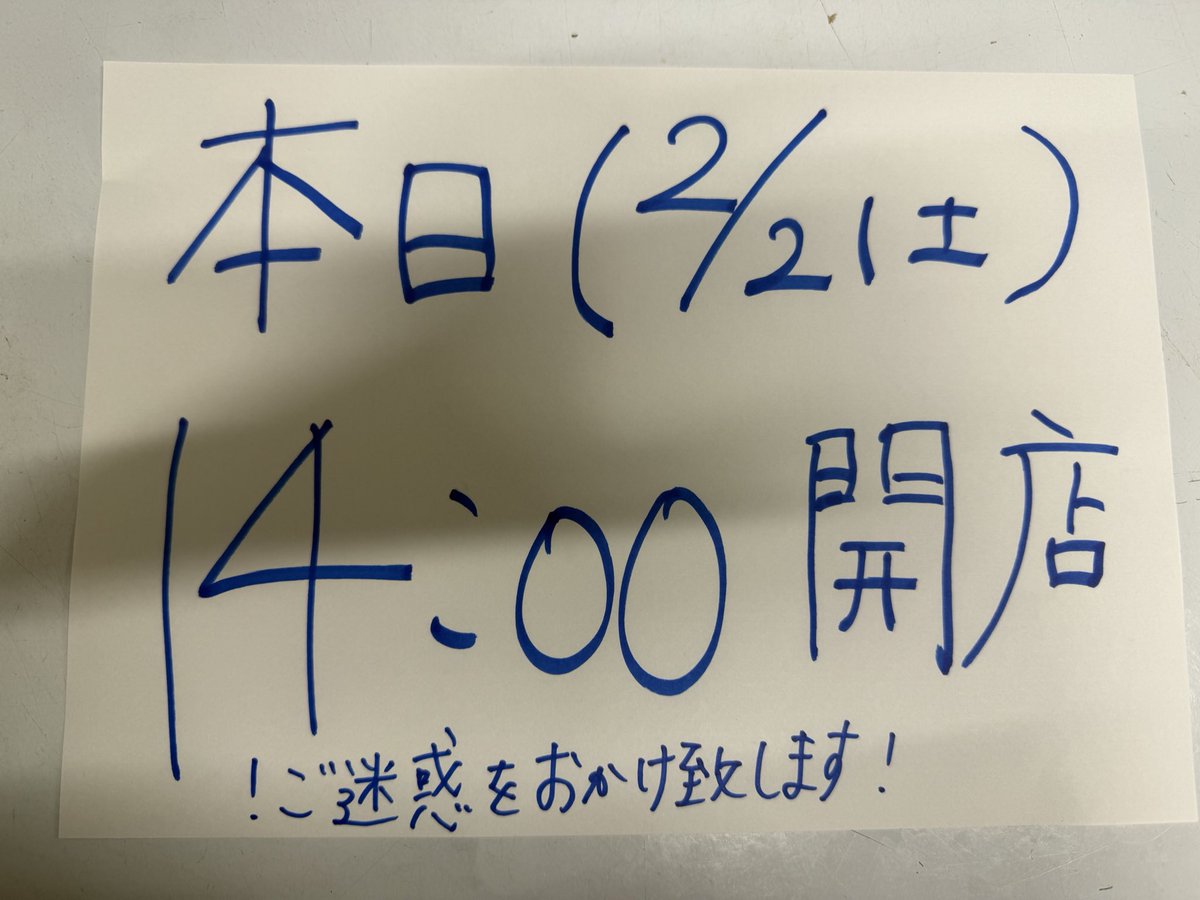 本日(2/21土)
14:00開店
!ご迷惑をおかけ致します!